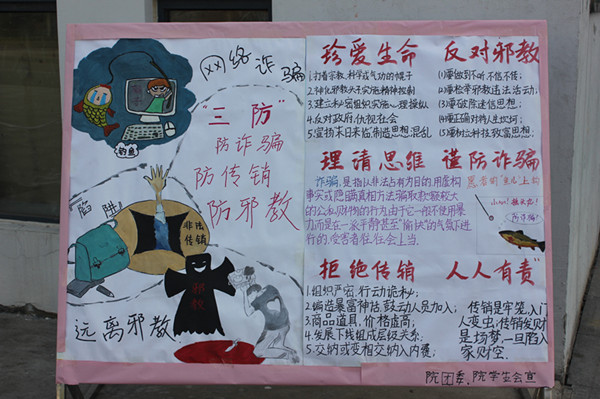 网络诈骗
钓鱼
"三防"
防诈骗
防传销
防邪教
陷阱
非法
传销
邪教
远离邪教
珍爱生命 反对邪教
1.打着宗教、科学或气功的幌子
2.神化邪教头子实施精神控制
3.建立秘密组织实施心理操纵
4.反对政府,仇视社会
5.宣扬末日来临制造思想混乱
(1)要做到不听不信不传;
(2)要检举邪教违法活动;
(3)要破除迷信思想;
(4)要正确对待人生坎坷;
(5)要树立科技致富思想;
理清思维 谨防诈骗
诈骗,是指以非法占有为目的,用虚构
事实或隐瞒真相方法骗取款额较大
的公私财物的行为,由于它一般不使用暴
力,而是在一派平静甚至"愉快"的气氛下进
行的,受害者往往会上当.
防诈骗!
拒绝传销 人人有责"
1.组织严密,行动诡秘;
2.编造暴富神话,鼓动人员加入;
3.商品道具,价格虚高;
4.发展下线组成层级关系.
5.交纳或变相交纳入门费.
传销是牢笼,入门
人变虫;传销发财
是场梦,一旦陷入
家财空.
院团委、院学生会宣